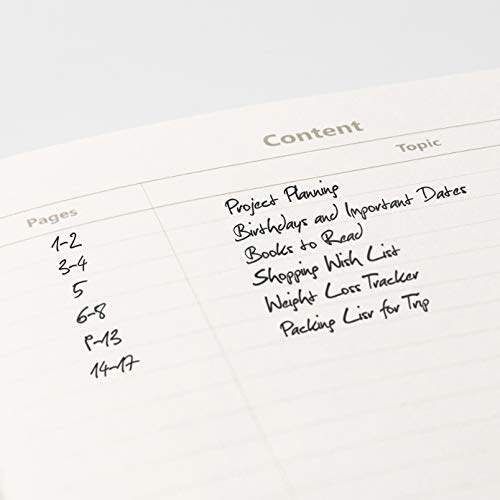 Content
Pages Topic
1-2 Project Planning
3-4 Birthdays and Important Dates
5 Books to Read
6-8 Shopping Wish List
9-13 Weight Loss Tracker
14-17 Packing List for Trip